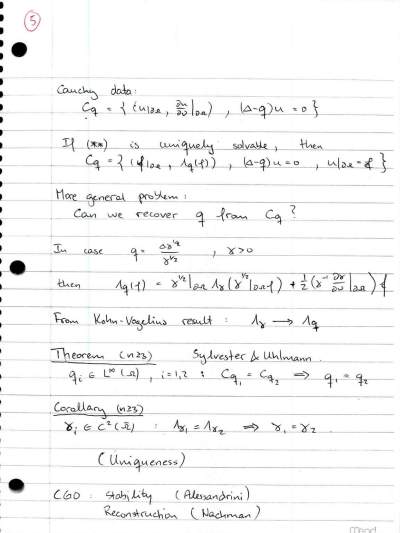 5
Cauchy data:
C_q = { (u|∂Ω, ∂u/∂ν|∂Ω), (Δ-q)u = 0 }
If (**) is uniquely solvable, then
C_q = { (f|∂Ω, Λq(f)), (Δ-q)u = 0, u|∂Ω = f }
More general problem:
Can we recover q from C_q?
In case q = Δγ^{1/2}/γ^{1/2}, γ>0
then Λq(f) = γ^{-1/2}|∂Ω Λγ(γ^{-1/2}|∂Ω f) + 1/2 (γ^{-1} ∂γ/∂ν|∂Ω) f
From Kohn-Vogelius result: Λγ → Λq
Theorem (n≥3) Sylvester & Uhlmann.
q_i ∈ L^∞(Ω), i=1,2 : C_{q_1} = C_{q_2} ⇒ q_1 = q_2
Corollary (n≥3)
γ_i ∈ C²(Ω̄) : Λγ_1 = Λγ_2 ⇒ γ_1 = γ_2.
(Uniqueness)
CGO: Stability (Alessandrini)
Reconstruction (Nachman)